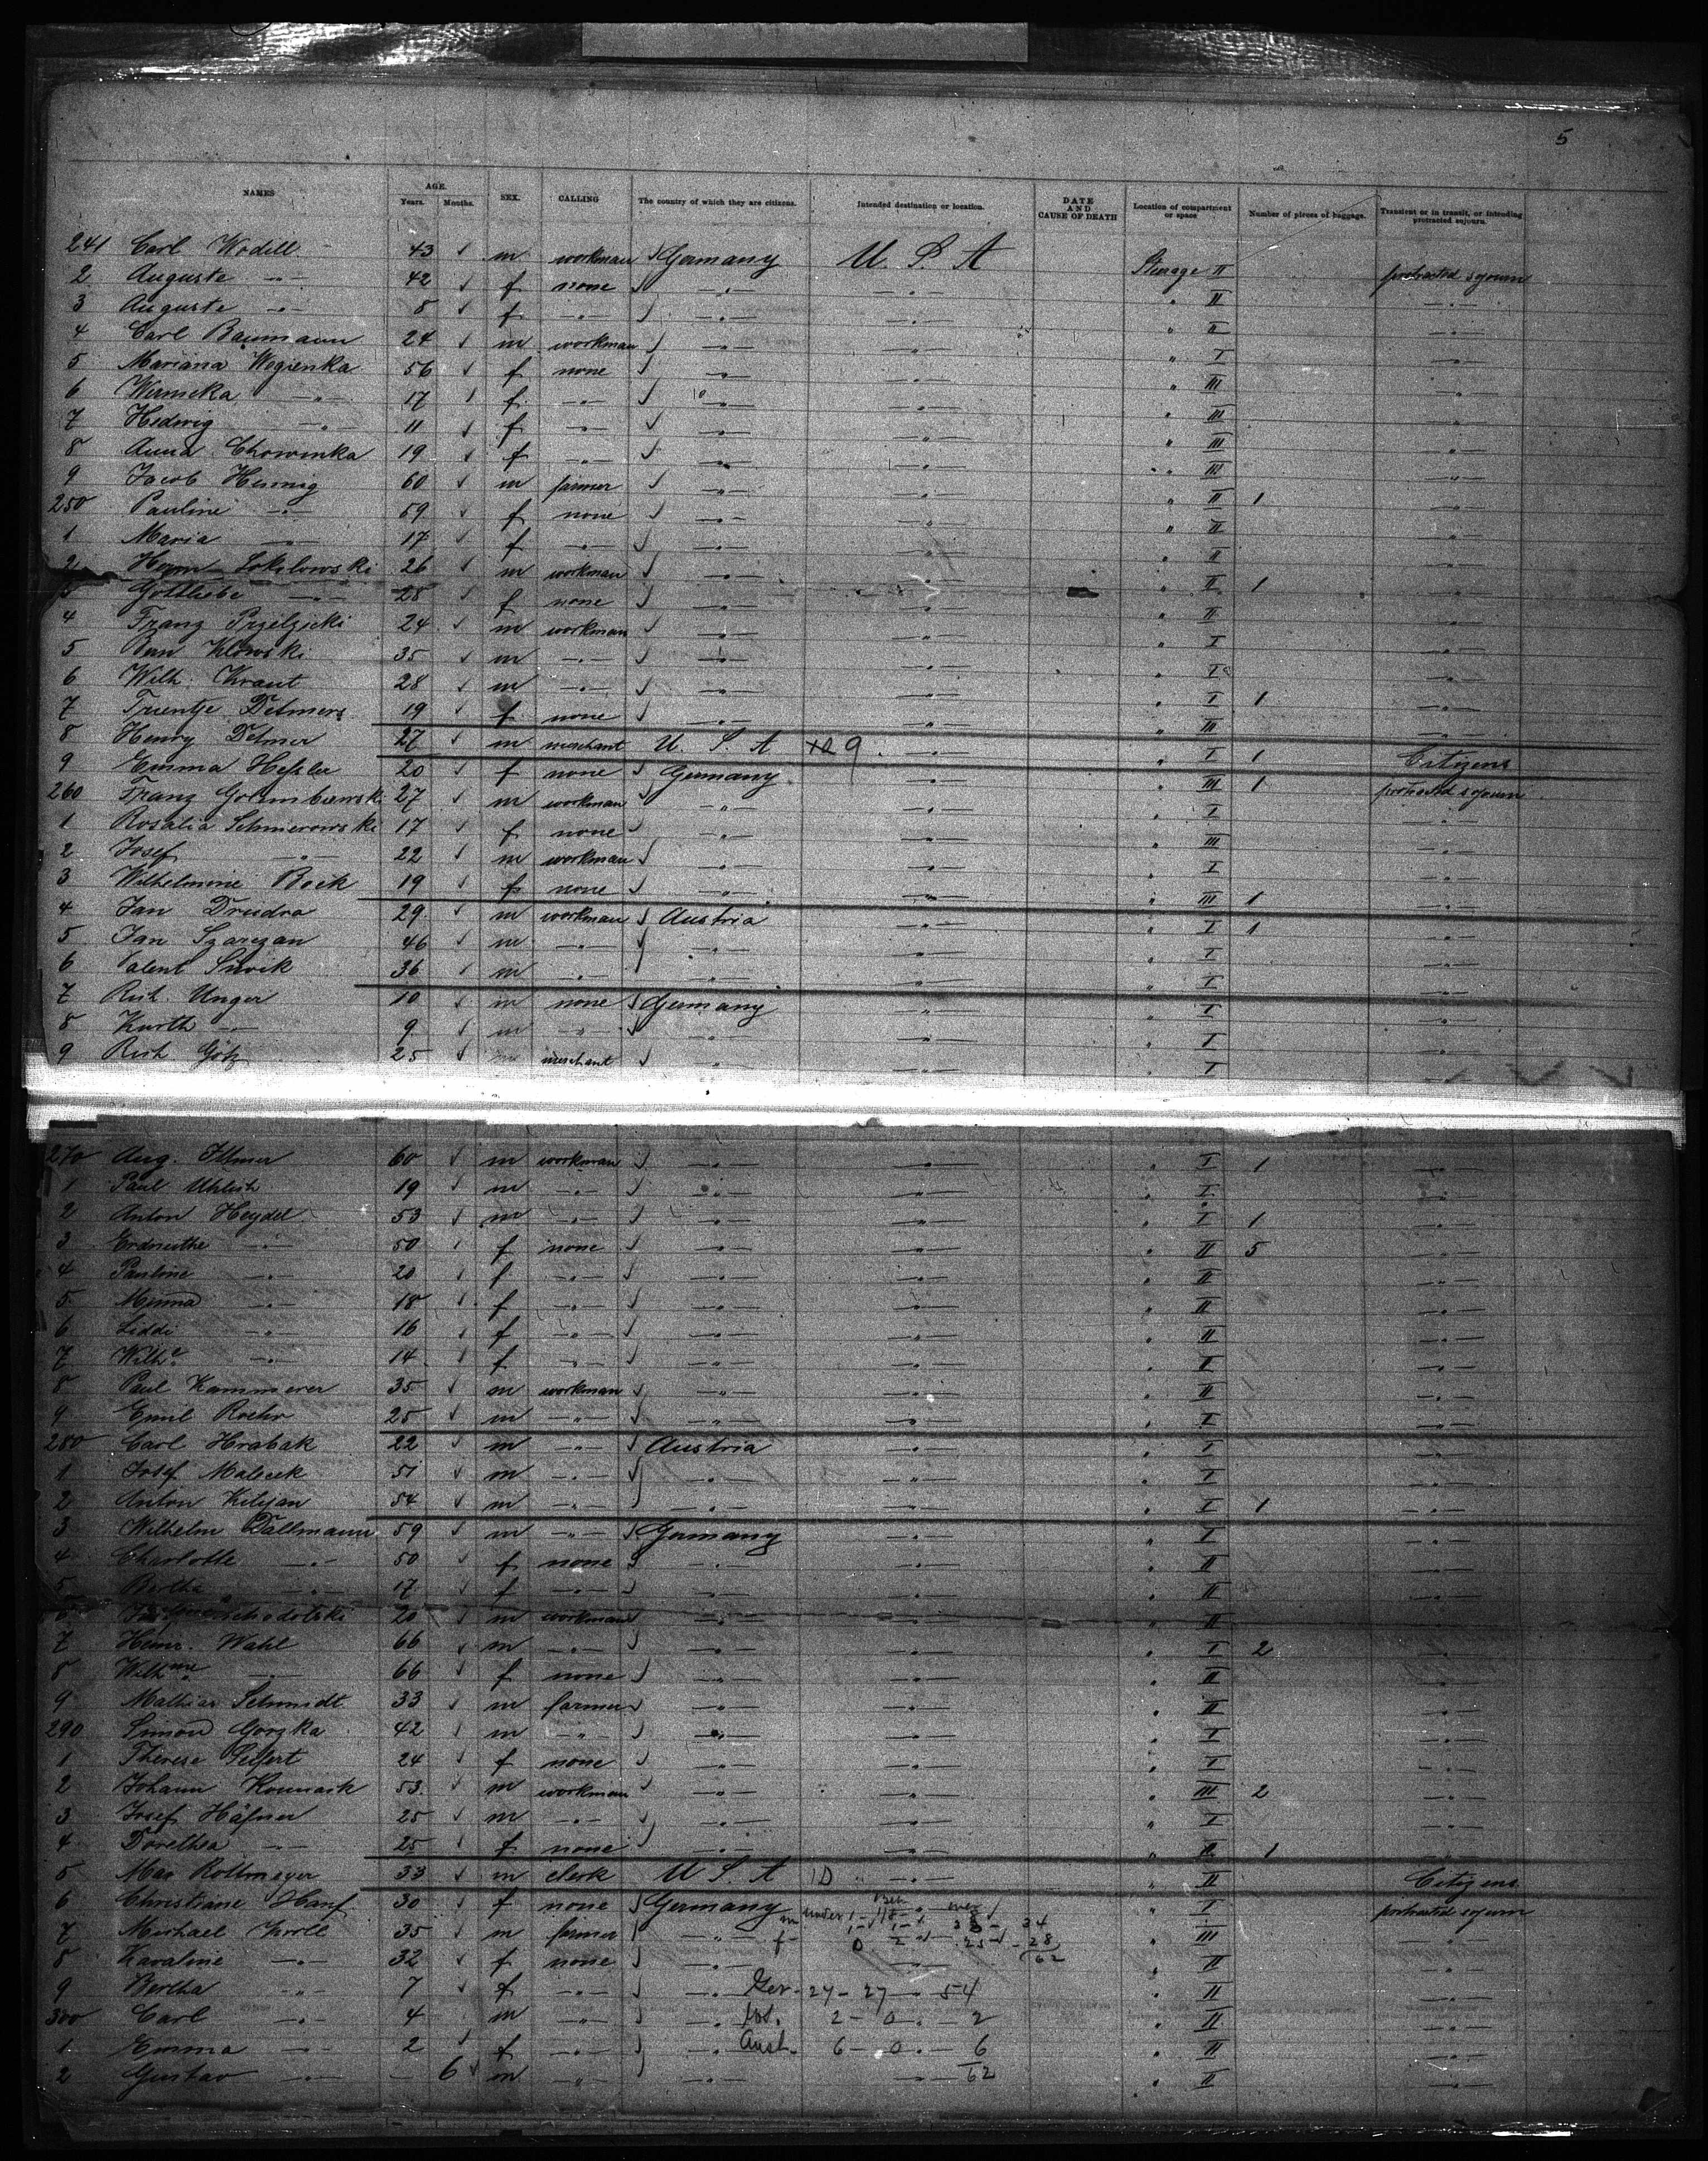 5
NAMES AGE. Years. Months. SEX. CALLING The country of which they are citizens. Intended destination or location. DATE AND CAUSE OF DEATH Location of compartment or space Number of pieces of baggage. Transient or in transit, or intending protracted sojourn.
241 Carl Wodell 43 ✓ m workman Germany U. S. A Steerage II protracted sojourn
2 Auguste -"- 42 ✓ f none -"- -"- " II -"-
3 Auguste -"- 8 ✓ f -"- -"- -"- " II -"-
4 Carl Baumann 24 ✓ m workman -"- -"- " I -"-
5 Mariana Wegienka 56 ✓ f none -"- -"- " III -"-
6 -"- 17 ✓ f -"- -"- -"- " III -"-
7 Hedwig -"- 11 ✓ f -"- -"- -"- " III -"-
8 Anna Chowinka 19 ✓ f -"- -"- -"- " III -"-
9 Jacob Hennig 60 ✓ m farmer -"- -"- " II 1 -"-
250 Pauline -"- 59 ✓ f none -"- -"- " II -"-
1 Maria -"- 17 ✓ f -"- -"- -"- " II -"-
2 26 ✓ m workman -"- -"- " II 1 -"-
3 Gottliebe -"- 28 ✓ f none -"- -"- " II -"-
4 Franz 24 ✓ m workman -"- -"- " I -"-
5 35 ✓ m -"- -"- -"- " I -"-
6 Wilh. Kraut 28 ✓ m -"- -"- -"- " I 1 -"-
7 Trientje Detmers 19 ✓ f none -"- -"- " III -"-
8 Henry Detmer 27 ✓ m merchant U. S. A 9 -"- " I 1 Citizens
9 Emma Hessler 20 ✓ f none Germany -"- " III 1 protracted sojourn
260 Franz Golembiewski 27 ✓ m workman -"- -"- " I -"-
1 Rosalia Schmerowski 17 ✓ f none -"- -"- " III -"-
2 Josef -"- 22 ✓ m workman -"- -"- " I -"-
3 Wilhelmine Bock 19 ✓ f none -"- -"- " III 1 -"-
4 Jan 29 ✓ m workman Austria -"- " I 1 -"-
5 Jan 46 ✓ m -"- -"- -"- " I -"-
6 Valent 36 ✓ m -"- -"- -"- " I -"-
7 Rich. Unger 10 ✓ m none Germany -"- " I -"-
8 Kurth -"- 9 ✓ m -"- -"- " I -"-
9 Rich Götz 25 ✓ m merchant -"- -"- " I -"-
270 Aug. 60 ✓ m workman -"- -"- " I 1 -"-
1 Paul Uhlich 19 ✓ m -"- -"- -"- " I -"-
2 Anton Heydel 53 ✓ m -"- -"- -"- " I 1 -"-
3 Erdmuthe -"- 50 ✓ f none -"- -"- " II 5 -"-
4 Pauline -"- 20 ✓ f -"- -"- -"- " II -"-
5 Minna -"- 18 ✓ f -"- -"- -"- " II -"-
6 Liddi -"- 16 ✓ f -"- -"- -"- " II -"-
7 Wilhe -"- 14 ✓ f -"- -"- -"- " II -"-
8 Paul Kammerer 35 ✓ m workman -"- -"- " II -"-
9 Emil Roehr 25 ✓ m -"- -"- -"- " I -"-
280 Carl Hrabak 22 ✓ m -"- Austria -"- " I -"-
1 Josef Malecek 51 ✓ m -"- -"- -"- " I -"-
2 Anton Kilijan 54 ✓ m -"- -"- -"- " I 1 -"-
3 Wilhelm Dallmann 59 ✓ m -"- Germany -"- " I -"-
4 Charlotte -"- 50 ✓ f none -"- -"- " II -"-
5 Bertha -"- 17 ✓ f -"- -"- -"- " II -"-
6 20 ✓ m workman -"- -"- " II -"-
7 Heinr. Wahl 66 ✓ m -"- -"- -"- " I 2 -"-
8 Wilhme -"- 66 ✓ f none -"- -"- " II -"-
9 Mathias Schmidt 33 ✓ m farmer -"- -"- " II -"-
290 Simon Gorzka 42 ✓ m -"- -"- -"- " I -"-
1 Therese Seifert 24 ✓ f none -"- -"- " I -"-
2 Johann 53 ✓ m workman -"- -"- " III 2 -"-
3 Josef Häfner 25 ✓ m -"- -"- -"- " I -"-
4 Dorethea -"- 25 ✓ f none -"- -"- " II 1 -"-
5 Max Rottmeyer 33 ✓ m clerk U. S. A -"- " II Citizens
6 Christiane Hanf 30 ✓ f none Germany under 1 over " I protracted sojourn
7 Michael Kroll 35 ✓ m farmer -"- 34 " III -"-
8 Karaline -"- 32 ✓ f none -"- f 0 2 28 62 " II -"-
9 Bertha -"- 7 ✓ f -"- -"- Ger - 27 - 27 - 54 " II -"-
300 Carl -"- 4 m -"- -"- 2 - 0 - 2 " II -"-
1 Emma -"- 2 ✓ f -"- -"- Aust. 6 - 0 - 6 " II -"-
2 Gustav -"- - 6 ✓ m -"- -"- -"- 62 " II -"-